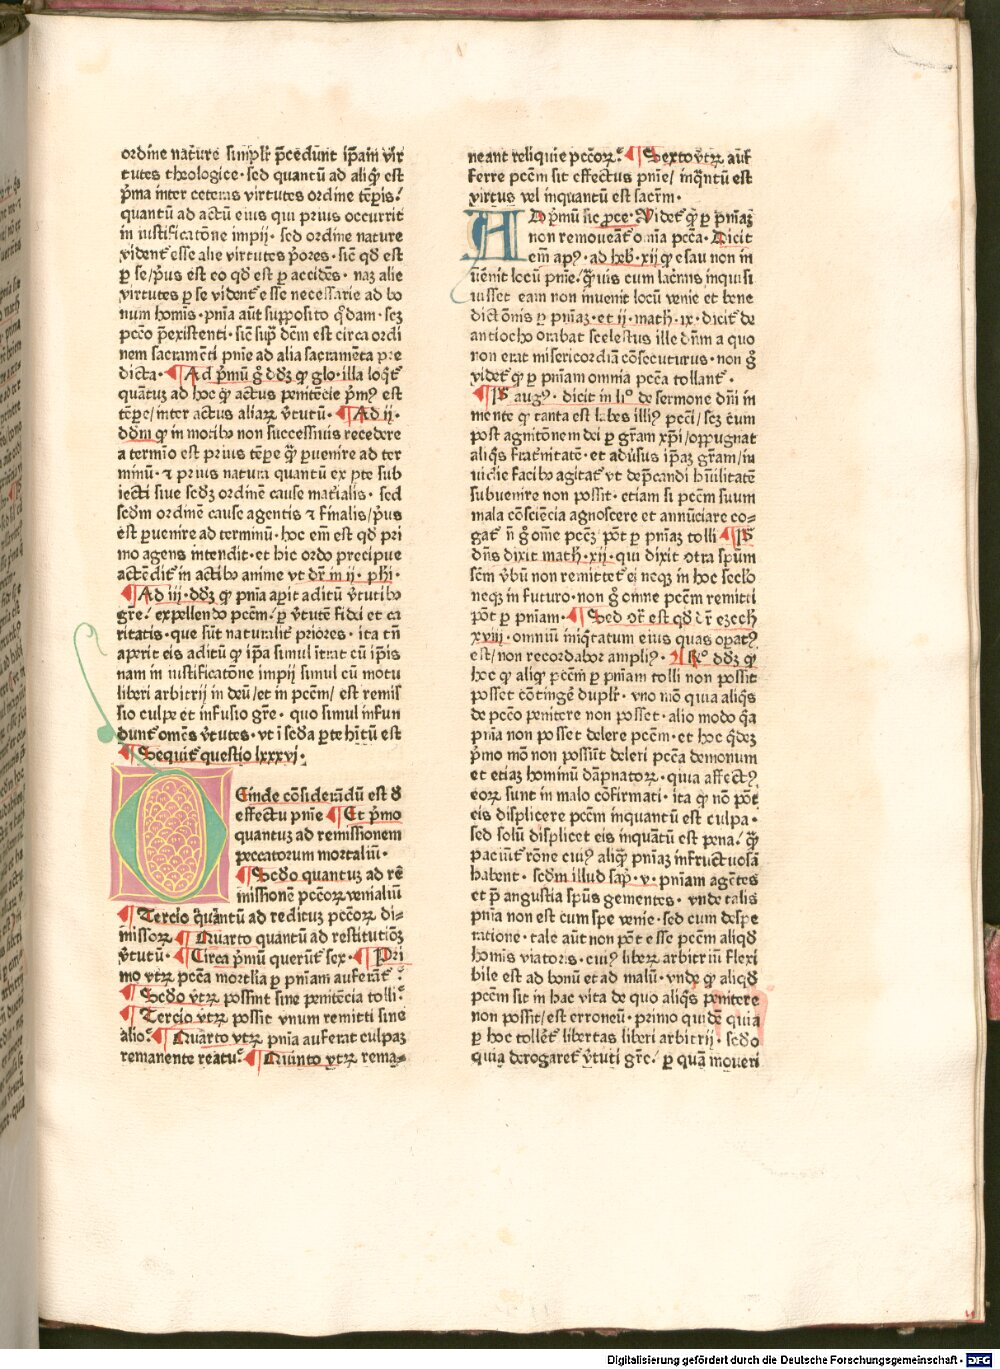 ordine nature simplr̄ p̄cedunt ip̄am vir
tutes theologice· sed quantū ad aliqͥ est
p̄ma inter ceteras virtutes ordine tēpis/
quantū ad actū eius qui prius occurrit
in iustificatōne impij· sed ordine nature
vident̄ esse alie virtutes p̄ores· sic̄ qd̄ est
ꝑ se/p̄us est eo qd̄ est ꝑ accidēs· naꝫ alie
virtutes ꝑ se vident̄ esse necessarie ad bo
num homīs· pn̄ia aūt supposito qͦdam· scꝫ
pctō p̄existenti· sic̄ sup̄ dc̄m est circa ordi
nem sacramēti pn̄ie ad alia sacramēta pre
dicta· Ad p̄mū g̊ dd̄ꝫ qͥ glo· illa loqͥt̄
quātuꝫ ad hoc qͥ actus penitēcie p̄mꝰ est
tēpe/inter actus aliaꝝ v̄tutū· Ad ii·
dd̄m qͥ in motibꝰ non successiuis recedere
a termīo est prius tēpe qͣꝫ ꝑuenire ad ter
minū· ⁊ prius natura quantū ex ꝑte sub
iecti siue scd̄ꝫ ordinē cause mat̄ialis· sed
scd̄m ordinē cause agentis ⁊ finalis/p̄us
est ꝑuenire ad terminū· hoc em̄ est qd̄ pri
mo agens intendit· et hic ordo precipue
actēdit̄ in actibꝰ anime vt dr̄ in ii· phi·
Ad iii· dd̄ꝫ qͥ pn̄ia apit aditū v̄tutibꝰ
gr̄e/ expellendo pcc̄m/ ꝑ v̄tutē fidei et ca
ritatis· que sūt naturalit̄ priores· ita tn̄
aperit eis aditū qͥ ip̄a simul ītrat cū ip̄is
nam in iustificatōne impij simul cū motu
liberi arbitrij in deū/et in pcc̄m/ est remis
sio culpe et infusio gr̄e· quo simul infun
dunt̄ om̄es v̄tutes· vt ī scd̄a ꝑte hītū est
Sequit̄ questio lxxxvi·
DEinde cōsiderādū est d̄
effectu pn̄ie Et p̄mo
quantuꝫ ad remissionem
peccatorum mortaliū·
Scd̄o quantuꝫ ad re
missionē pcc̄oꝝ venialiū
Tercio quātū ad redituꝫ pcc̄oꝝ di⸗
missoꝝ Quarto quantū ad restitutiōꝫ
v̄tutū· Circa p̄mū querūt̄ sex· Pri
mo vtꝝ pcc̄a mortl̄ia ꝑ pn̄iam auferāt̄
Scd̄o vtꝝ possint sine penitēcia tolli
Tercio vtꝝ possit vnum remitti sine
alio· Quarto vtꝝ pn̄ia auferat culpaꝫ
remanente reatu· Quinto vtꝝ rema⸗
neant reliquie pcc̄oꝝ· Sexto vtꝝ auf
ferre pcc̄m sit effectus pn̄ie/ inqͣntū est
virtus vel inquantū est sacr̄m·
AD p̄mū sic ꝓce· Videt̄ qͥ ꝑ pn̄iaꝫ
non remoueāt̄ om̄ia pcc̄a· Dicit
em̄ apꝰ· ad heb· xij qͥ esau non in
uēnit locū pn̄ie/ qͣuis cum lacrīmis inquisi
uisset eam non inuenit locū venie et bene
dictōnis ꝑ pn̄iaꝫ· et ij· mach· ix· dicit̄ de
antiocho orabat scelestus ille dn̄m a quo
non erat misericordiā cōsecuturus· non g̊
videt̄ qͥ ꝑ pn̄iam omnia pcc̄a tollant̄·
P̄ augꝰ· dicit in liº de sermone dn̄i in
monte qͥ tanta est labes illiꝰ pcc̄i/ scꝫ cum
post agnitōnem dei ꝑ gr̄am xp̄i/oppugnat
aliqͥs frat̄nitatē· et adūsus ip̄aꝫ gr̄am/in
uidie facibꝰ agitat̄ vt dep̄candi hūilitatē
subuenire non possit· etiam si pcc̄m suum
mala cōsciēcia agnoscere et annūciare co⸗
gat̄ n̄ g̊ om̄e pcc̄ꝫ pōt ꝑ pn̄iaꝫ tolli P̄
dn̄s dixit math· xij· qui dixit ↄtra sp̄um
scm̄ v̄bū non remittet̄ ei neqꝫ in hoc secl̄o
neqꝫ in futuro· non g̊ omne pcc̄m remitti
pōt ꝑ pn̄iam· Sed ↄ̄t est qd̄ dr̄ ezech
xviij· omniū iniqͥtatum eius quas opat̄ꝰ
est/ non recordabor ampliꝰ· Rº dd̄ꝫ qͥ
hoc qͥ aliqͥ pcc̄m ꝑ pn̄iam tolli non possit
posset cōtingē duplr̄· vno mō quia aliqͥs
de pctō penitere non posset· alio modo qͣa
pn̄ia non posset delere pcc̄m· et hoc qͥdeꝫ
p̄mo mō non possūt deleri pcc̄a demonum
et etiaꝫ hominū dāpnatoꝝ· quia affectꝰ
eoꝝ sunt in malo cōfirmati· ita qͥ nō pōt
eis displicere pcc̄m inquantū est culpa·
sed solū displicet eis inquātū est pena/ qͣꝫ
paciūt̄ rōne cuiꝰ aliqͣꝫ pn̄iaꝫ infructuosā
habent· scd̄m illud sap̄· v· pn̄iam agētes
et p̄ angustia sp̄us gementes· vnde talis
pn̄ia non est cum spe venie· sed cum despe
ratione· tale aūt non pōt esse pcc̄m aliqd̄
homīs viatoris· cuiꝰ liberꝝ arbitriū flexi
bile est ad bonū et ad malū· vnde qͥ aliqd̄
pcc̄m sit in hac vita de quo aliqͥs penitere
non possit/est erroneū· primo quidē quia
ꝑ hoc tollet̄ libertas liberi arbitrij· scd̄o
quia derogaret̄ v̄tuti gr̄e/ ꝑ quā moueri
Digitalisierung gefördert durch die Deutsche Forschungsgemeinschaft - DFG